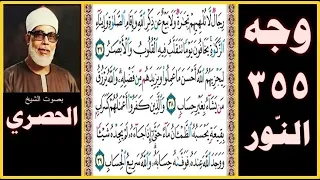 وجه
٣٥٥
النّور
رِجَالٌ لَّا تُلْهِيهِمْ تِجَٰرَةٌ وَلَا بَيْعٌ عَن ذِكْرِ ٱللَّهِ وَإِقَامِ ٱلصَّلَوٰةِ وَإِيتَآءِ
ٱلزَّكَوٰةِ يَخَافُونَ يَوْمًا تَتَقَلَّبُ فِيهِ ٱلْقُلُوبُ وَٱلْأَبْصَٰرُ ٣٧
لِيَجْزِيَهُمُ ٱللَّهُ أَحْسَنَ مَا عَمِلُوا۟ وَيَزِيدَهُم مِّن فَضْلِهِۦ وَٱللَّهُ يَرْزُقُ
مَن يَشَآءُ بِغَيْرِ حِسَابٍ ٣٨ وَٱلَّذِينَ كَفَرُوٓا۟ أَعْمَٰلُهُمْ كَسَرَابٍۭ
بِقِيعَةٍ يَحْسَبُهُ ٱلظَّمْـَٔانُ مَآءً حَتَّىٰٓ إِذَا جَآءَهُۥ لَمْ يَجِدْهُ شَيْـًٔا
وَوَجَدَ ٱللَّهَ عِندَهُۥ فَوَفَّىٰهُ حِسَابَهُۥ وَٱللَّهُ سَرِيعُ ٱلْحِسَابِ ٣٩
بصوت الشيخ
الحصري